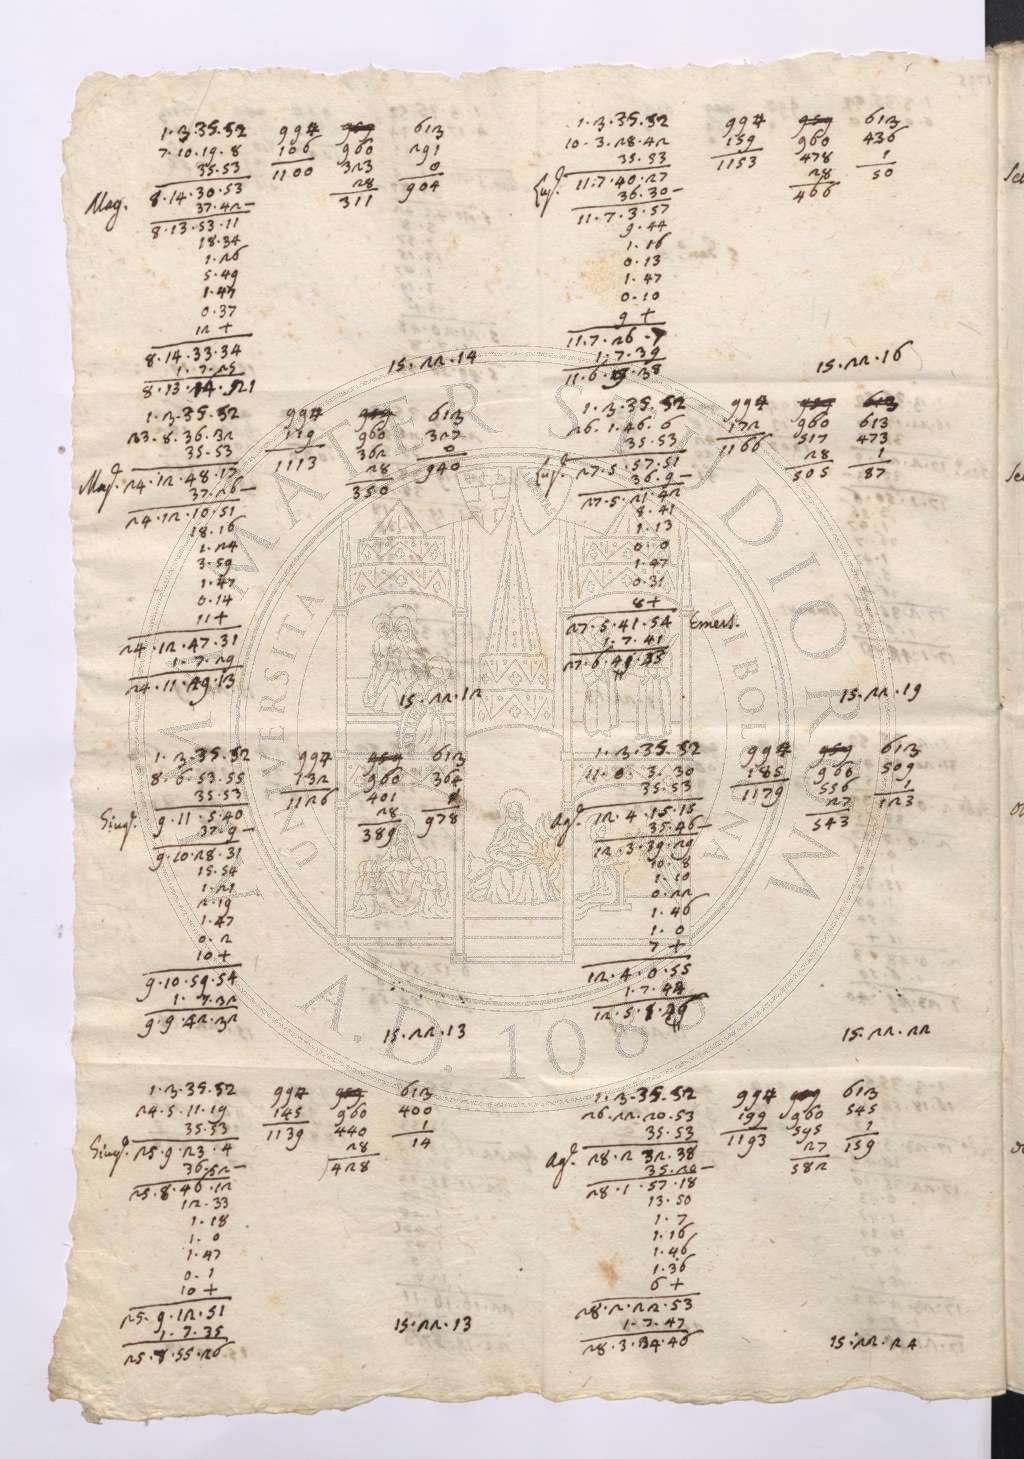 1·2·35·52 994 959 612
7·10·19·8 106 960 291
35·53 1100 323 0
8·14·30·53 28 904
Mag. 37·42— 311
8·13·53·11
18·34
1·26
5·49
1·47
0·37
12 +
8·14·33·34
1·7·25
15·22·14
1·2·35·52 994 959 612
23·8·36·32 119 960 327
35·53 1113 362 0
Mag. 24·12·48·17 28 940
37·26— 350
24·12·10·51
18·16
1·24
3·59
1·47
0·14
11 +
24·12·47·31
1·7·29
15·22·12
1·2·35·52 994 959 612
8·6·53·55 132 960 364
35·53 1126 401
Giug. 9·11·5·40 28 978
37·9— 389
9·10·28·31
15·54
1·21
2·19
1·47
0·2
10 +
9·10·59·54
1·7·32
9·9·52·32
15·22·13
1·2·35·52 994 959 612
24·5·11·19 145 960 400
35·53 1139 440 1
Giug. 25·9·23·4 28 14
36·52— 428
25·8·46·12
12·33
1·18
1·0
1·47
0·1
10 +
25·9·12·51
1·7·35
25·8·55·26
15·22·13
1·2·35·52 994 959 612
10·3·28·42 159 960 436
35·53 1153 478 1
Lug. 11·7·40·27 28 50
36·30— 466
11·7·3·57
9·44
1·16
0·13
1·47
0·10
9 +
11·7·26·7
1·7·39
15·22·16
1·2·35·52 994 959 612
26·1·46·6 172 960 613
35·53 1166 517 473
Lug. 27·5·57·51 28 1
36·9— 505 87
27·5·21·42
8·41
1·13
0·0
1·47
0·31
8 +
27·5·41·54 Emers.
1·7·41
15·22·19
1·2·35·52 994 959 612
11·0·3·30 185 960 509
35·53 1179 556 1
Ag. 12·4·15·15 27 123
35·46— 543
12·3·39·29
10·8
1·10
0·22
1·46
1·0
7 +
12·4·0·55
1·7·44
15·22·22
1·2·35·52 994 959 612
26·22·20·53 199 960 545
35·53 1193 595 1
Ag. 28·2·32·38 27 159
35·20— 582
28·1·57·18
13·50
1·7
1·16
1·46
1·36
6 +
28·2·22·53
1·7·47
28·3·34·46
15·22·24